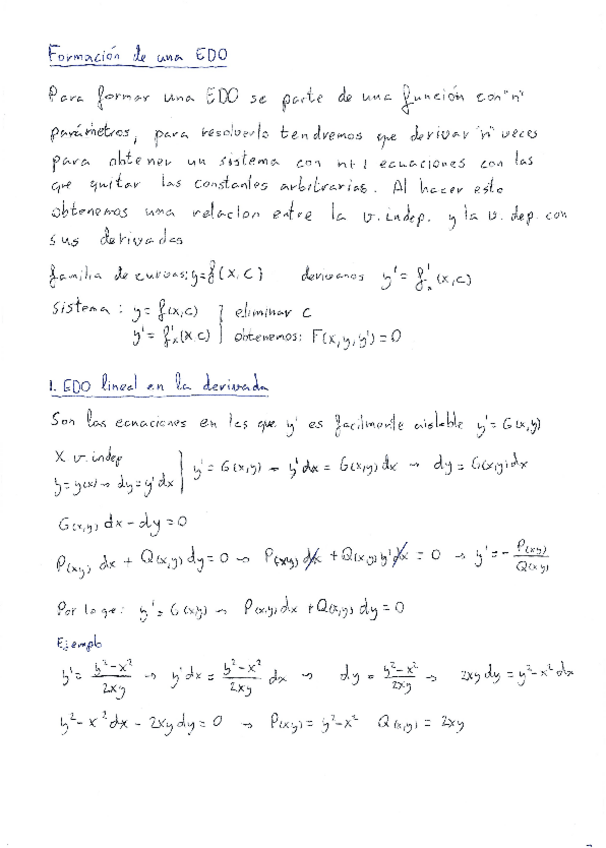 Formación de una EDO
Para formar una EDO se parte de una función con "n"
parámetros, para resolverlo tendremos que derivar "n" veces
para obtener un sistema con n+1 ecuaciones con las
que quitar las constantes arbitrarias. Al hacer esto
obtenemos una relacion entre la v.indep. y la v. dep. con
sus derivadas
familia de curvas: y=f(x,C) derivamos y' = f'x(x,C)
Sistema: y = f(x,C) } eliminar C
y' = f'x(x,C) } obtenemos: F(x,y,y') = 0
1. EDO lineal en la derivada
Son las ecuaciones en las que y' es facilmente aislable y' = G(x,y)
X v.indep
y = y(x) → dy = y'dx } y' = G(x,y) → y'dx = G(x,y)dx → dy = G(x,y)dx
G(x,y) dx - dy = 0
P(x,y) dx + Q(x,y) dy = 0 → P(x,y) dx + Q(x,y) y' dx = 0 → y' = - P(x,y)/Q(x,y)
Por lo qe: y' = G(x,y) → P(x,y)dx + Q(x,y) dy = 0
Ejemplo
y' = y²-x²/2xy → y'dx = y²-x²/2xy dx → dy = y²-x²/2xy → 2xy dy = y²-x² dx
y²-x² dx - 2xy dy = 0 → P(x,y) = y²-x² Q(x,y) = 2xy